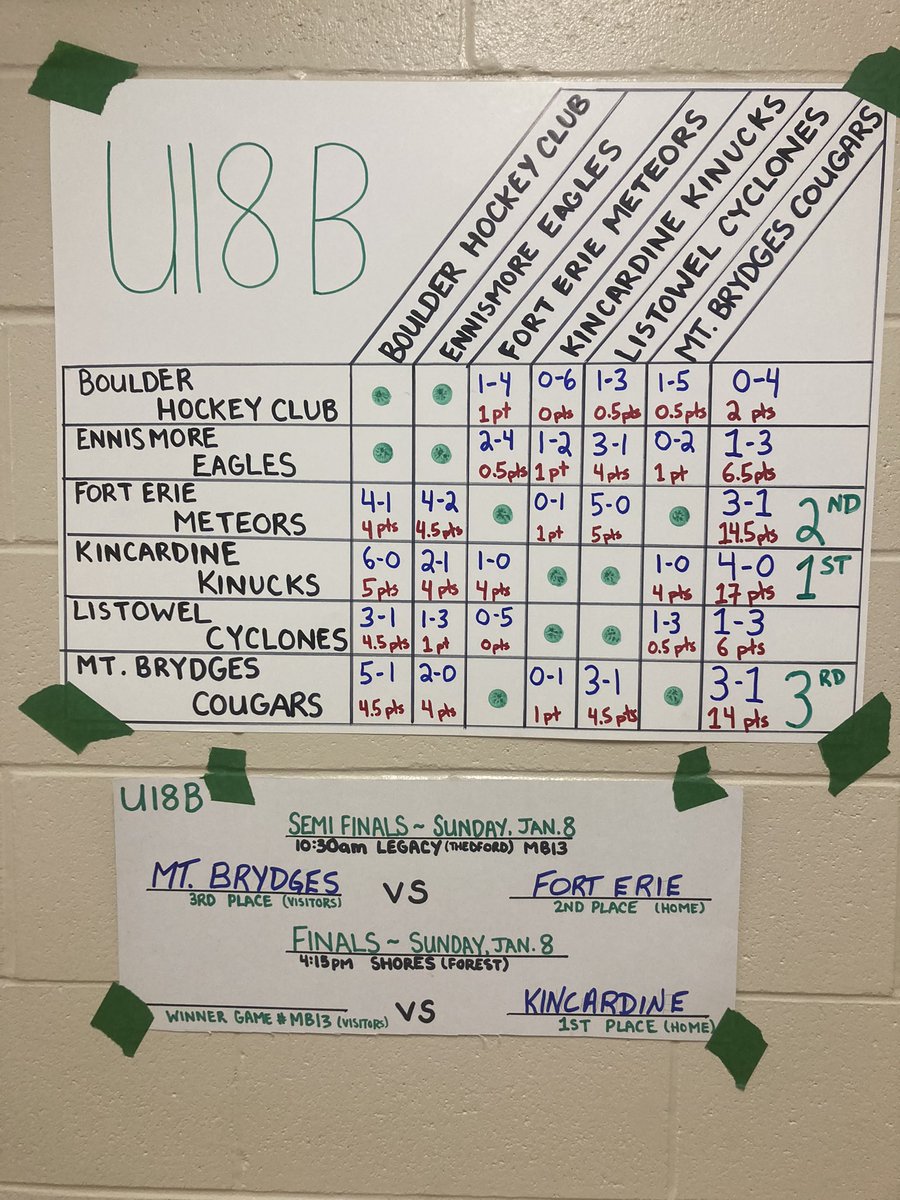 U18 B
BOULDER HOCKEY CLUB
ENNISMORE EAGLES
FORT ERIE METEORS
KINCARDINE KINUCKS
LISTOWEL CYCLONES
MT. BRYDGES COUGARS
BOULDER
HOCKEY CLUB
1-4 0-6 1-3 1-5 0-4
1pt 0pts 0.5pts 0.5pts 2 pts
ENNISMORE
EAGLES
2-4 1-2 3-1 0-2 1-3
0.5pts 1pt 4pts 1pt 6.5pts
FORT ERIE
METEORS
4-1 4-2 0-1 5-0 3-1 2ND
4pts 4.5pts 1pt 5pts 14.5pts
KINCARDINE
KINUCKS
6-0 2-1 1-0 1-0 4-0 1ST
5pts 4pts 4pts 4pts 17pts
LISTOWEL
CYCLONES
3-1 1-3 0-5 1-3 1-3
4.5pts 1pt 0pts 0.5pts 6 pts
MT. BRYDGES
COUGARS
5-1 2-0 0-1 3-1 3-1 3RD
4.5pts 4pts 1pt 4.5pts 14 pts
U18B
SEMI FINALS ~ SUNDAY, JAN. 8
10:30am LEGACY (THEDFORD) MB13
MT. BRYDGES VS FORT ERIE
3RD PLACE (VISITORS) 2ND PLACE (HOME)
FINALS ~ SUNDAY, JAN. 8
4:15PM SHORES (FOREST)
VS KINCARDINE
WINNER GAME # MB13 (VISITORS) 1ST PLACE (HOME)